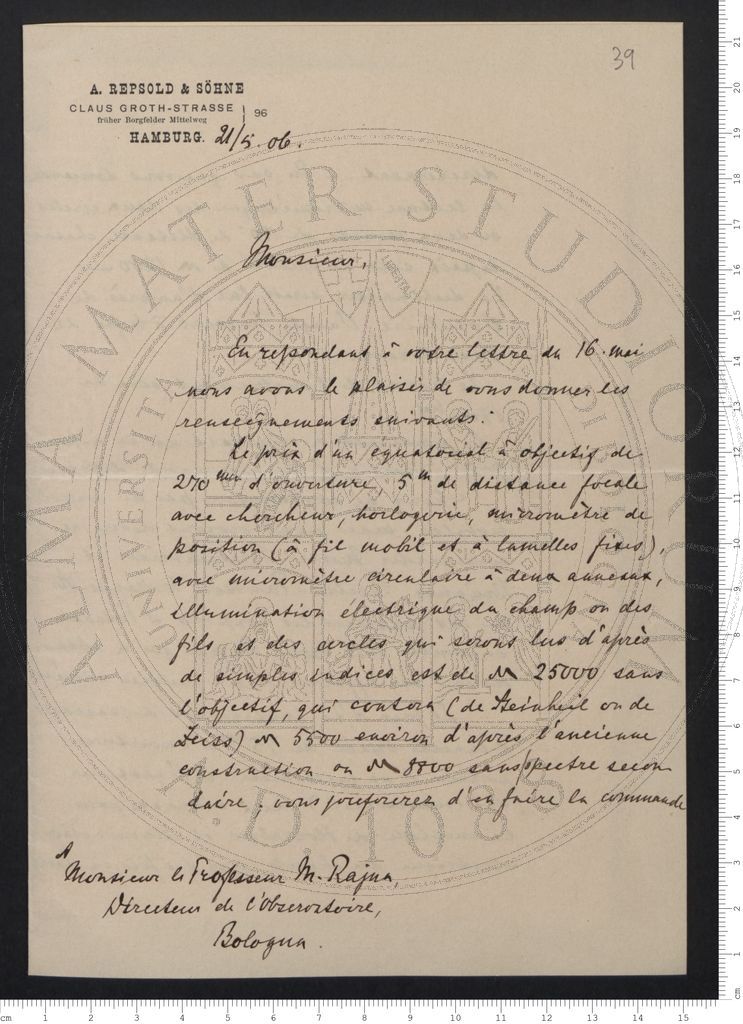 39
A. REPSOLD & SÖHNE
CLAUS GROTH-STRASSE } 96
früher Borgfelder Mittelweg
HAMBURG. 21/5. 06.
Monsieur,
En repondant à votre lettre du 16. mai
nous avons le plaisir de vous donner les
renseignements suivants:
Le prix d'un équatorial à objectif de
270 mm d'ouverture, 5 m de distance focale
avec chercheur, horlogerie, micromètre de
position (à fil mobil et à lamelles fixes),
avec micromètre circulaire à deux anneaux,
illumination électrique du champ ou des
fils et des cercles qui seront lus d'après
de simples indices est de M 25000 sans
l'objectif, qui coutera (de Steinheil ou de
Zeiss) M 5500 environ d'après l'ancienne
construction ou M 8800 sans spectre secon
daire; vous préférerez d'en faire la commande
A
Monsieur le Professeur M. Rajna,
Directeur de l'Observatoire,
Bologna.
ALMA MATER STUDIORUM
UNIVERSITA
A.D. 1088
LIBERTAS
cm 1 2 3 4 5 6 7 8 9 10 11 12 13 14 15
cm 1 2 3 4 5 6 7 8 9 10 11 12 13 14 15 16 17 18 19 20 21